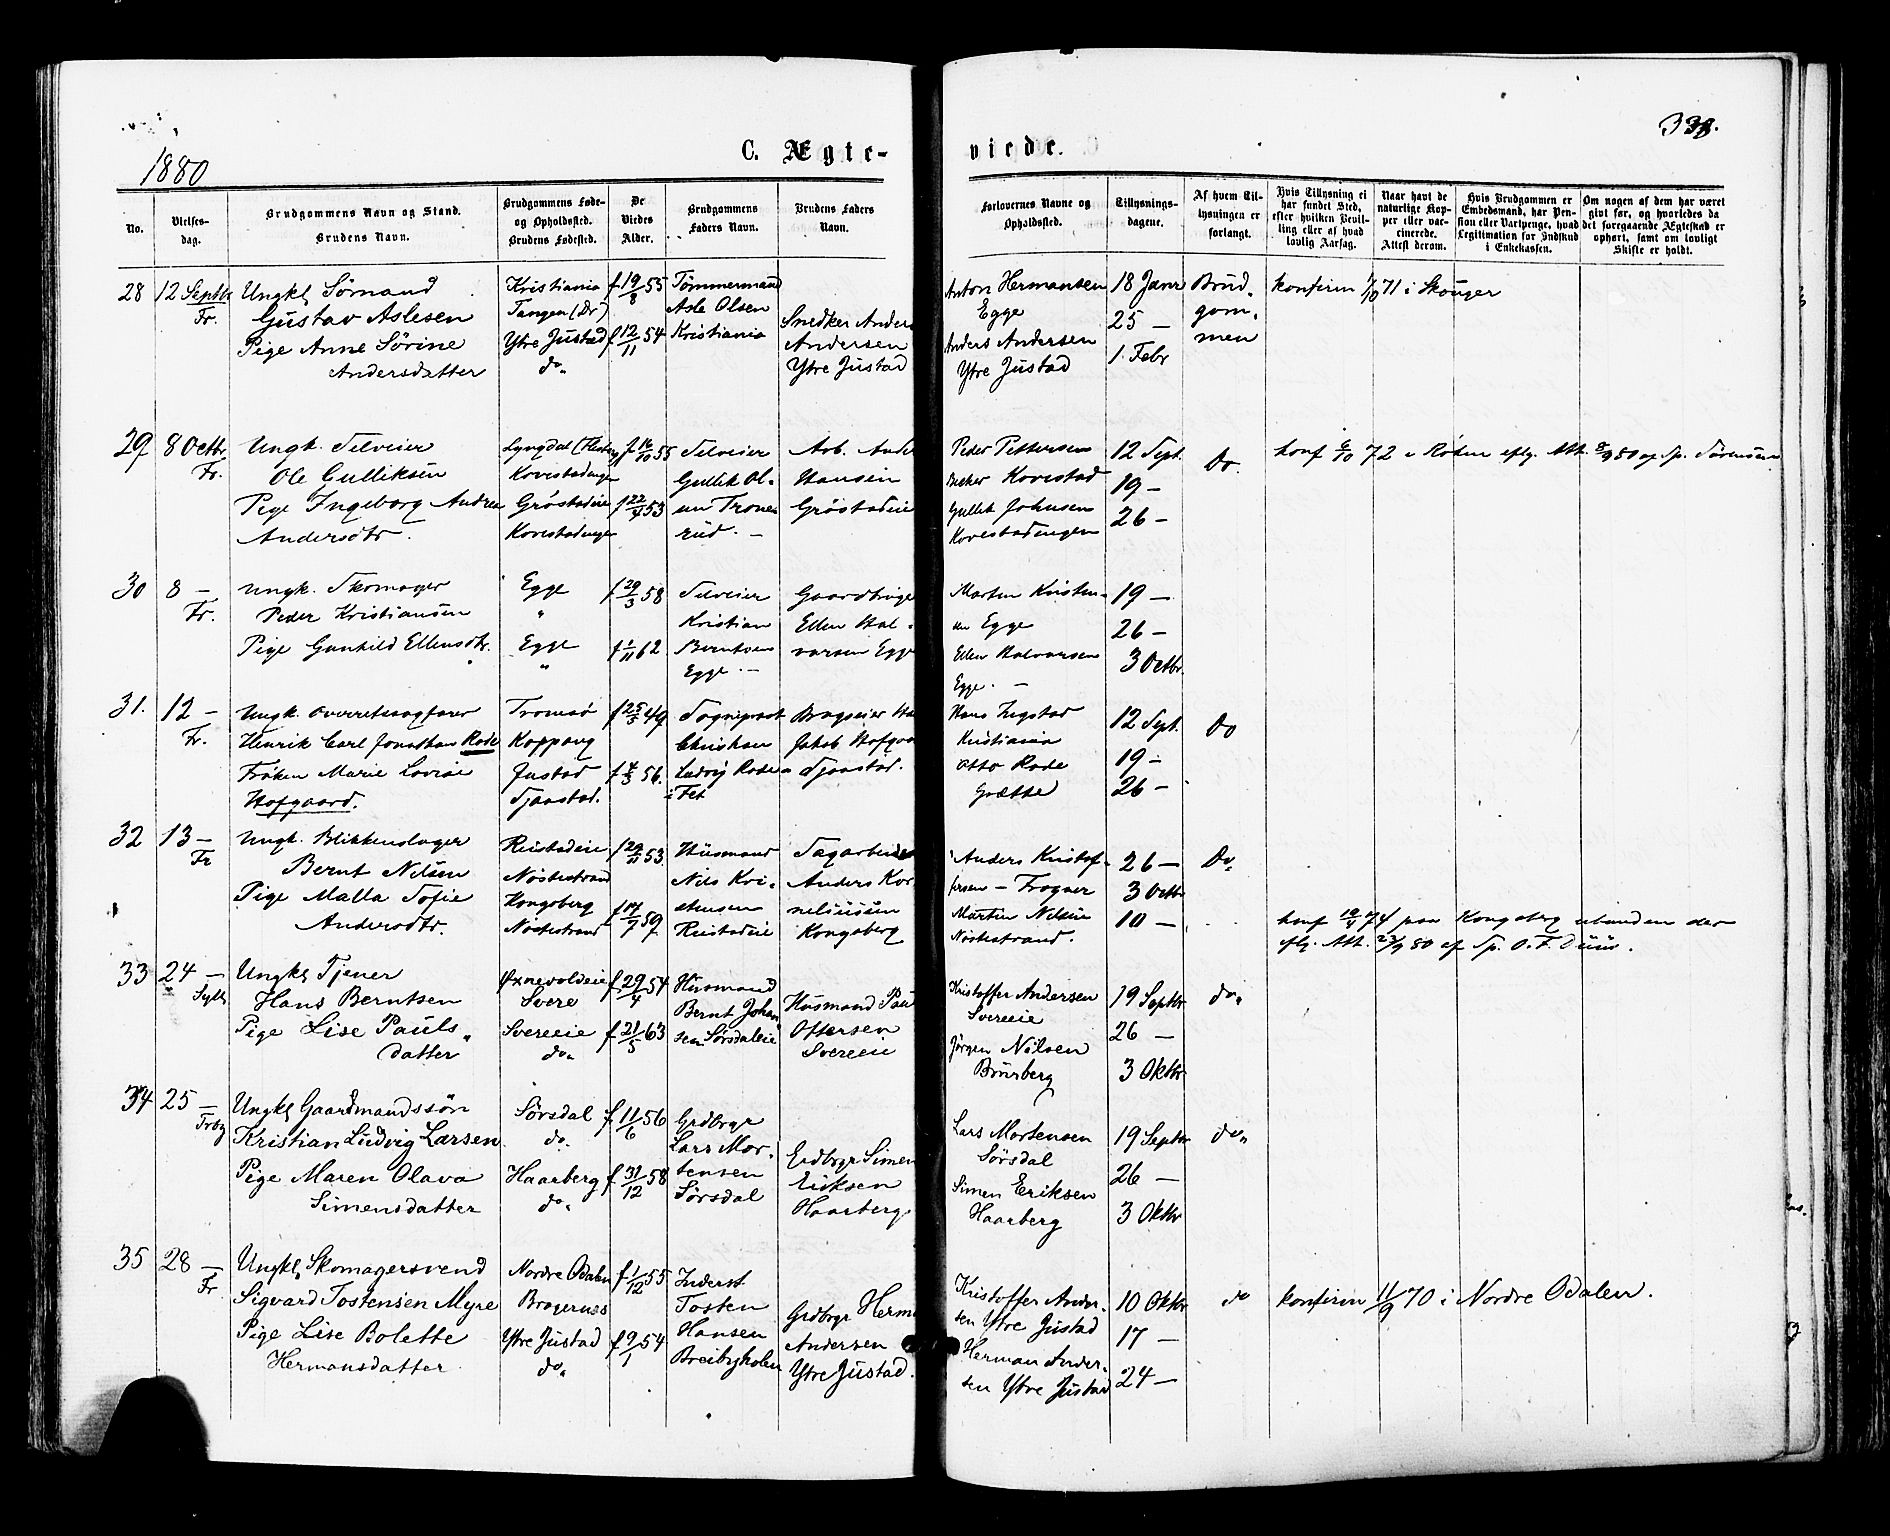 1880
C. Ægte-
viede.
No.
Vielses-
dag.
Brudgommens Navn og Stand.
Brudens Navn.
Brudgommens Føde-
og Opholdssted.
Brudens Fødested.
De
Viedes
Alder.
Brudgommens
Faders Navn.
Brudens Faders
Navn.
Forlovernes Navne og
Opholdssted.
Tillysnings-
dagene.
Af hvem Til-
lysningen er
forlangt.
Hvis Tillysning ei
har fundet Sted,
efter hvilken Bevil-
ling eller af hvad
lovlig Aarsag.
Naar havt de
naturlige Kop-
per eller vac-
cinerede.
Attest derom.
Hvis Brudgommen er
Embedsmand, har Pen-
sion eller Vartpenge, hvad
Legitimation for Indskud
i Enkekassen.
Om nogen af dem har været
givt før, og hvorledes da
det foregaaende Ægteskab er
ophørt, samt om lovligt
Skifte er holdt.
28
12 Septbr
Fr.
Ungkl Sømand
Gustav Aslesen
Pige Anne Sørine
Andersdatter
Kristiania
Tangen (Dr)
Ytre Justad
do
f 19/8 55
f 12/11 54
Tømmermand
Asle Olsen
Kristiania
Snedker Anders
Andersen
Ytre Justad
Anton Hermansen
Egge
Anders Andersen
Ytre Justad
18 Janr
25 —
1. Febr
Brud-
gom-
men
konfirm 1/10 71 i Skouger
29
8 Octbr.
Fr.
Ungk. Selveier
Ole Gulliksen
Pige Ingeborg Andrea
Andersdtr.
Lyngdal
Kovestadengen
Grøstadeie
Kovestadengen
f 16/10 55
f 22/4 53
Selveier
Gullik Ol-
sen Trones
rud. —
Arb. Ande
Hansen
Grøstadeie
Peder Pettersen
Kovestad
Gullik Johnsen
Kovestadengen
12 Sept.
19 —
26 —
Do.
konf 6/10 72 i Røken eflg. Att. 8/9 80 af Sp. Sørensen
30
8 —
Fr.
Ungk. Skomager
Peder Kristiansen
Pige Gunhild Ellensdtr.
Egge
"
Egge
"
f 29/3 58
f 1/11 62
Selveier
Kristian
Berntsen
Egge. —
Gaardbruge
Ellen Hal-
vorsen Egge
Morten Kristen-
sen Egge
Ellen Halvorsen
Egge. —
19 —
26 —
3 Octbr.
31.
12 —
Fr.
Ungk. Overretssagfører
Henrik Carl Jonathan Rode
Frøken Marie Lovise
Hofgaard.
Tromsø
Koppang
Justad
Sjaastad.
f 25/5 49
f 4/3 56.
Sogneprest
Christian
Ludvig Rode
i Fet
Brugseier
Jakob Hofgaa
Sjaastad.
Hans Ingstad
Kristiania
Otto Rode
Grætte
12 Sept.
19 —
26 —
Do
32
13 —
Fr
Ungk. Blikkenslager
Bernt Nilsen
Pige Malla Sofie
Andersdtr.
Reistadeie
Nøstestrand
Kongsberg
Nøstestrand
f 29/11 53
f 17/7 59
Husmand
Nils Kri-
stensen
Reistadeie
Sagarbeider
Anders Kor
neliussen
Kongsberg
Anders Kristof-
fersen — Frogner
Martin Nilsen
Nøstestrand.
26 —
3 Octbr
10 —
Do.
konf 19/4 74 paa Kongsberg
eflg. Att. 23/9 80 af Sp. O. F. Duus.
33
24 —
Sylli
Ungkl Tjener
Hans Berntsen
Pige Lise Pauls-
datter
Øxnevoldeie
Svere
Svereeie
do
f 29/4 54
f 21/5 63
Husmand
Bernt Johan
sen Sørsdaleie
Husmand Paul
Oftersen
Svereeie
Kristoffer Andersen
Svereeie
Jørgen Nilsen
Brurberg
19 Septbr
26 —
3 Oktbr
do
34
25 —
Ungkl Gaardmandssøn
Kristian Ludvig Larsen
Pige Maren Olava
Simensdatter
Sørsdal
do
Haarberg
do
f 11/6 56
f 31/12 58
Grdbrgr
Lars Mor-
tensen
Sørsdal
Grdbrgr Simen
Eriksen
Haarberg
Lars Mortensen
Sørsdal
Simen Eriksen
Haarberg
19 Septbr
26 —
3 Oktbr
do
35
28 —
Fr
Ungkl. Skomagersvend
Sigvard Tostensen Myre
Pige Lise Bolette
Hermansdatter
Nordre Odalen
Bragernes
Ytre Justad
do
f 1/12 55
f 9/1 54
Inderst
Tosten
Hansen
Breibyholen
Grdbrgr Herm
Andersen
Ytre Justad.
Kristoffer Ander-
sen Ytre Justad
Herman Ander-
sen Ytre Justad
10 Oktbr
17 —
24 —
do
konfirm 11/9 70 i Nordre Odalen.